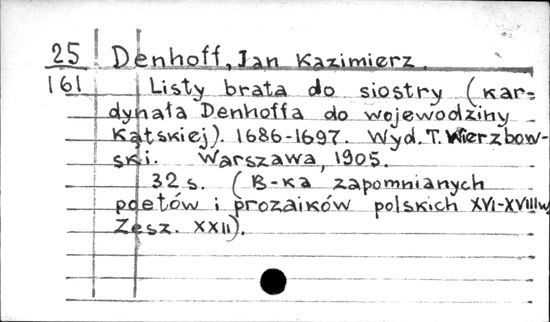 25 Denhoff, Jan Kazimierz.
161 Listy brata do siostry (kar=
dynała Denhoffa do wojewodziny
Kątskiej). 1686-1697. Wyd. T. Wierzbow-
ski. Warszawa, 1905.
32 s. (B-ka zapomnianych
poetów i prozaików polskich XVI-XVIII w.
Zesz. XXII).